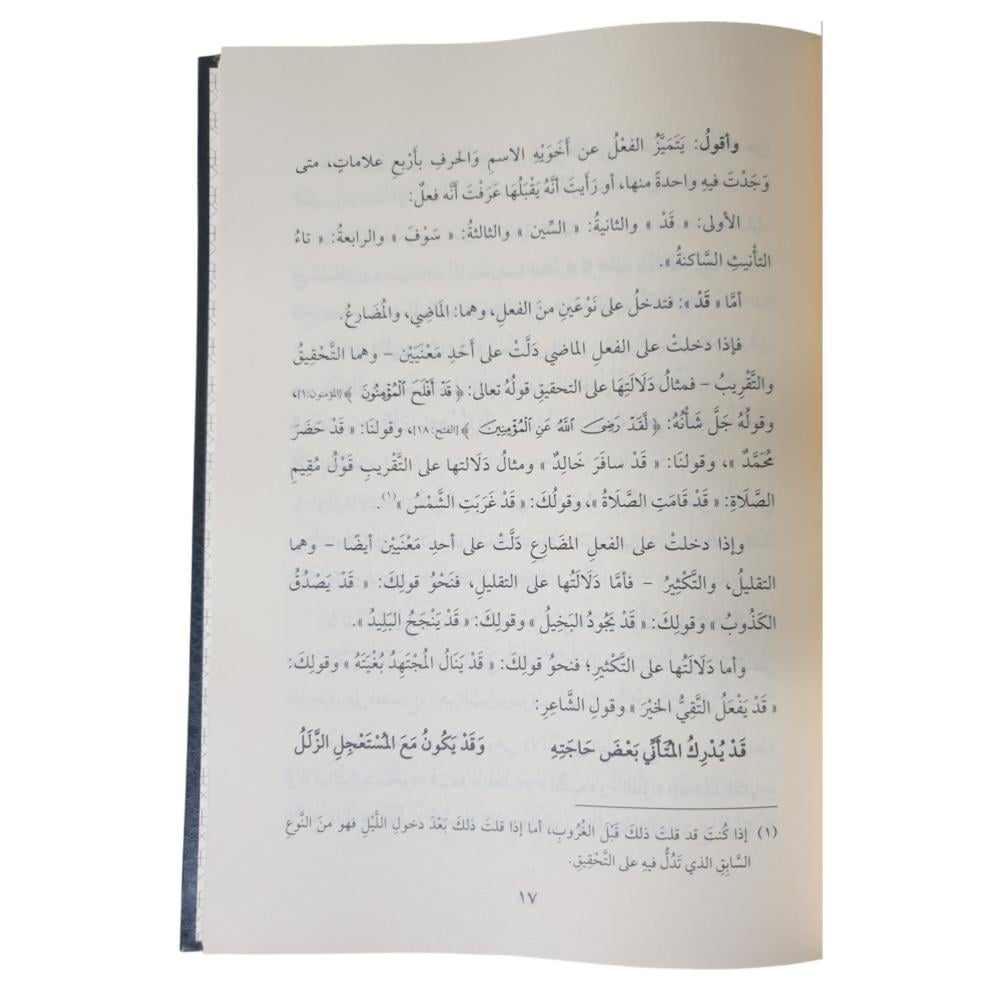 وأقولُ: يَتَمَيَّزُ الفعْلُ عن أَخَوَيْهِ الاسمِ وَالحرفِ بأَرْبعِ علاماتٍ، متى
وَجَدْتَ فيهِ واحدةً منها، أو رَأَيتَ أنَّهُ يَقْبَلُهَا عَرَفْتَ أنَّه فعلٌ:
الأولى: « قَدْ » والثانيةُ: « السِّين » والثالثةُ: « سَوْفَ » والرابعةُ: « تاءُ
التأنيثِ السَّاكنةُ ».
أمَّا « قَدْ »: فتدخلُ على نَوْعَينِ منَ الفعلِ، وهما: المَاضِي، والمُضَارعُ.
فإذا دخلتْ على الفعلِ الماضي دَلَّتْ على أَحَدِ مَعْنَيَيْن – وهما التَّحْقِيقُ
والتَّقْرِيبُ – فمثالُ دَلَالَتِهَا على التحقيقِ قولُهُ تعالى: ﴿ قَدْ أَفْلَحَ الْمُؤْمِنُونَ ﴾[المؤمنون:١]،
وقولُهُ جَلَّ شَأْنُهُ: ﴿ لَقَدْ رَضِيَ اللَّهُ عَنِ الْمُؤْمِنِينَ ﴾[الفتح:١٨]، وقولنَا: « قَدْ حَضَرَ
مُحَمَّدٌ »، وقولنَا: « قَدْ سافَرَ خَالِدٌ » ومثالُ دَلَالتها على التَّقْريبِ قَوْلُ مُقِيمِ
الصَّلَاةِ: « قَدْ قَامَتِ الصَّلَاةُ »، وقولُكَ: « قَدْ غَرَبَتِ الشَّمْسُ »(١).
وإذا دخلتْ على الفعلِ المضَارعِ دَلَّتْ على أحدِ مَعْنَيَيْن أيضًا – وهما
التقليلُ، والتَّكْثِيرُ – فأمَّا دَلَالَتُها على التقليلِ، فنَحْوُ قولِكَ: « قَدْ يَصْدُقُ
الكَذُوبُ » وقولِكَ: « قَدْ يَجُودُ البَخِيلُ » وقولِكَ: « قَدْ يَنْجَحُ البَلِيدُ ».
وأما دَلَالَتُها على التَّكْثيرِ؛ فنحوُ قولِكَ: « قَدْ يَنَالُ المُجْتَهِدُ بُغْيَتَهُ » وقولِكَ:
« قَدْ يَفْعَلُ التَّقِيُّ الخَيْرَ » وقولِ الشَّاعرِ:
قَدْ يُدْرِكُ المُتَأَنِّي بَعْضَ حَاجَتِهِ    وَقَدْ يَكُونُ مَعَ المُسْتَعْجِلِ الزَّلَلُ
(١) إذا كُنتَ قد قلتَ ذلكَ قَبْلَ الغُرُوبِ، أما إذا قلتَ ذلكَ بَعْدَ دخولِ اللَّيْلِ فهو منَ النَّوْعِ
السَّابقِ الذي تَدُلُّ فيهِ على التَّحْقِيقِ.
١٧